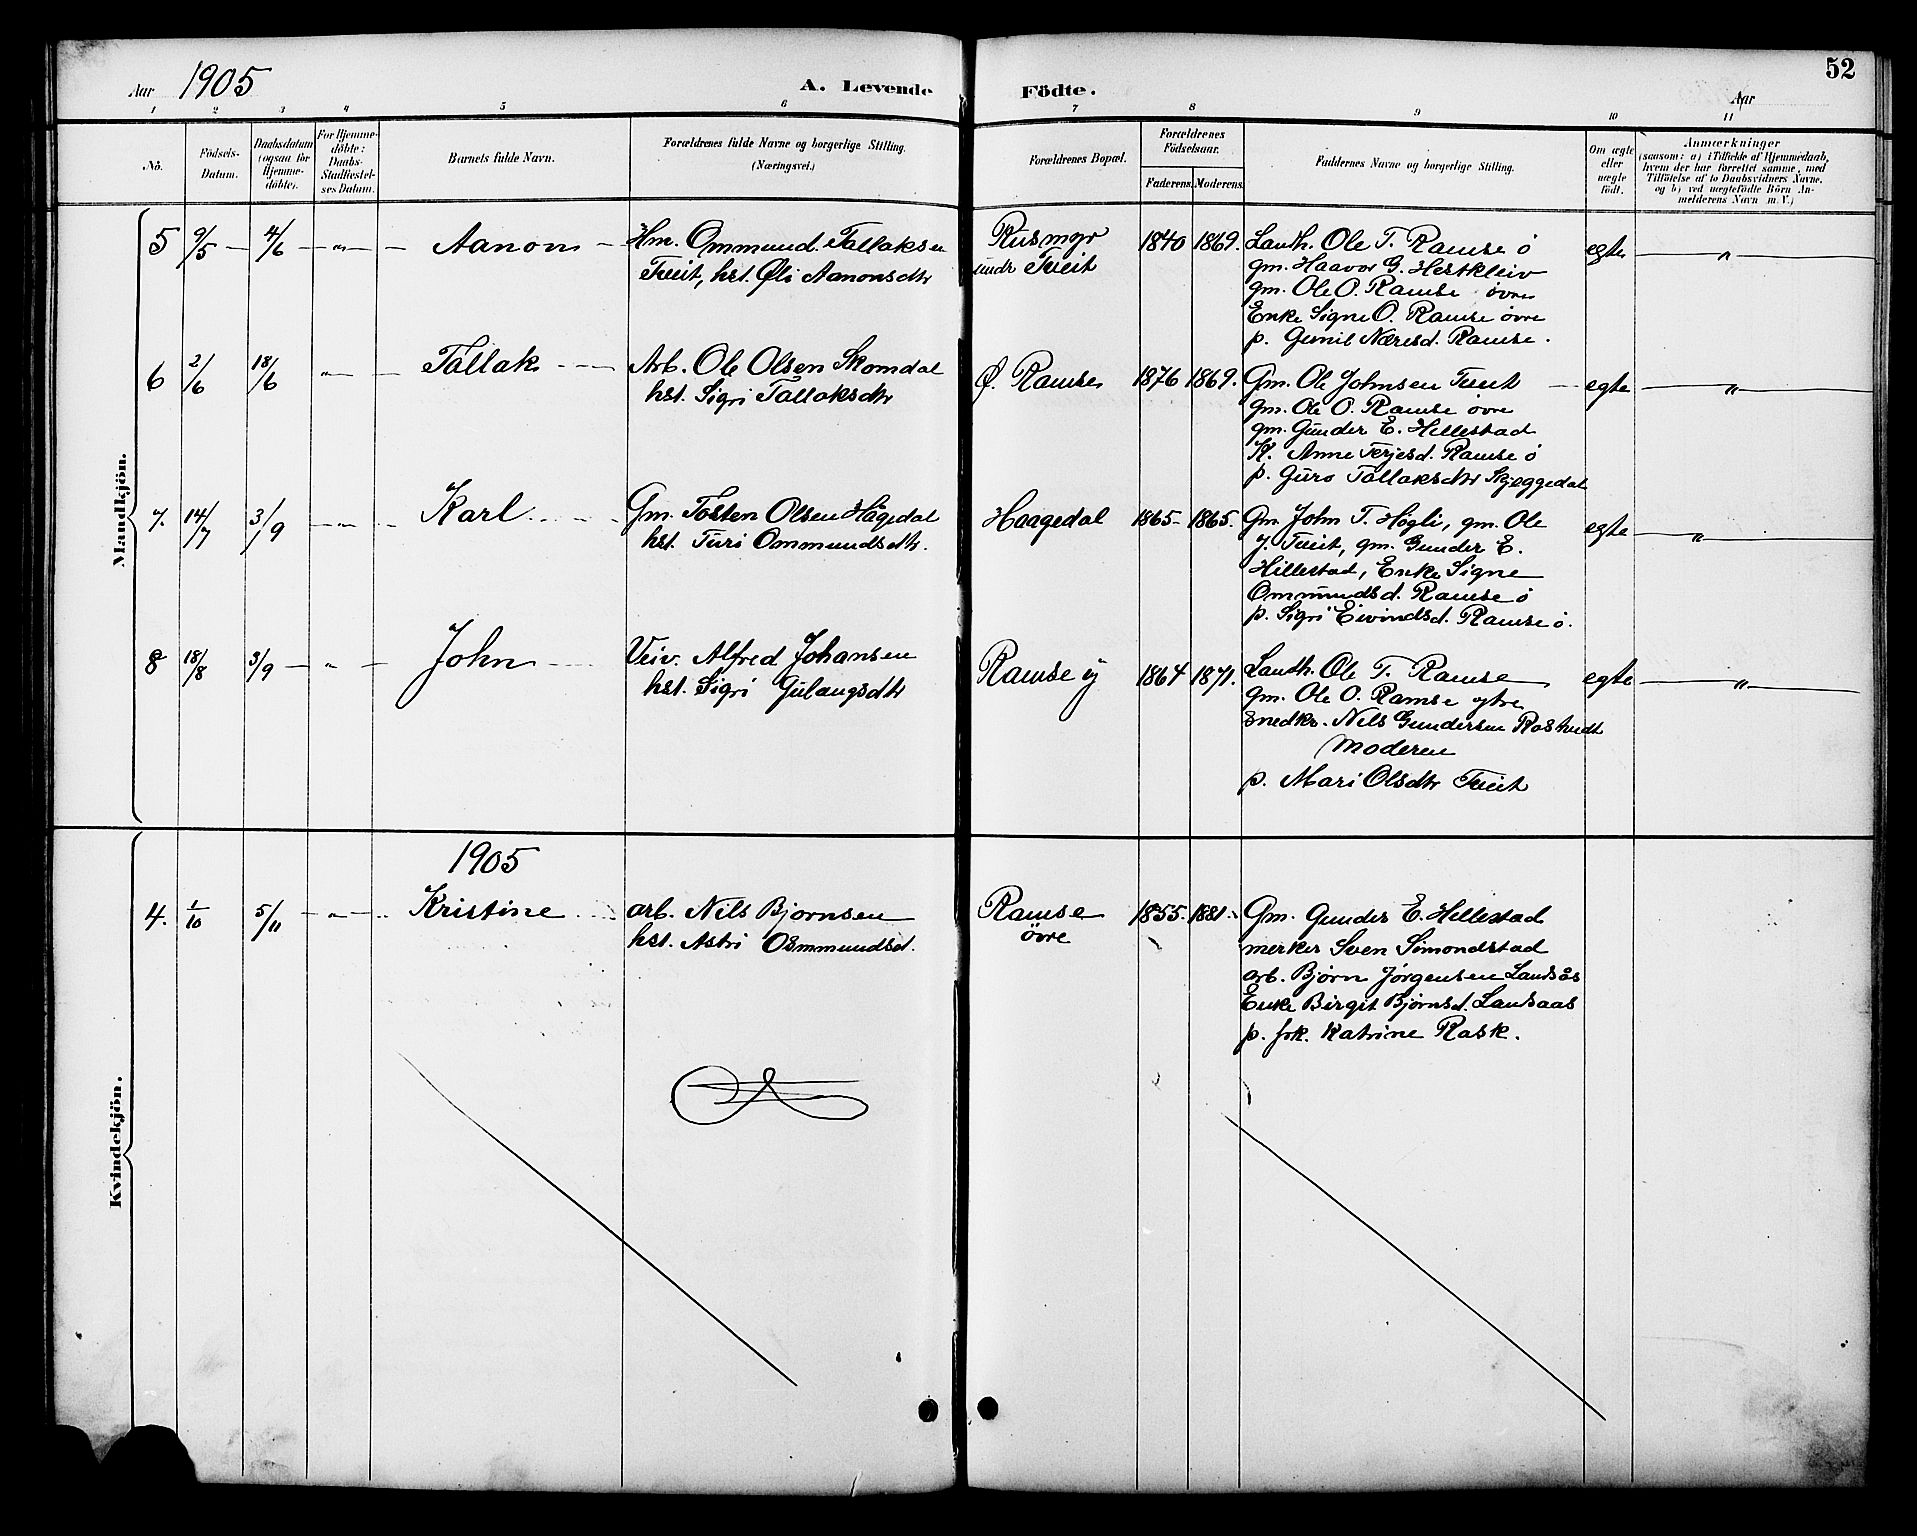 Aar 1905
A. Levende Födte.
52
Aar
1 2 3 4 5 6 7 8 9 10 11
No.
Födsels-
Datum.
Daabsdatum
(ogsaa för
Hjemme-
döbte).
For Hjemme-
döbte:
Daabs-
Stadfæstel-
ses Datum.
Barnets fulde Navn.
Forældrenes fulde Navne og borgerlige Stilling.
(Næringsvei.)
Forældrenes Bopæl.
Forældrenes
Födselsaar.
Faderens. Moderens.
Faddernes Navne og borgerlige Stilling.
Om ægte
eller
uægte
födt.
Anmærkninger
(saasom: a) i Tilfælde af Hjemmedaab,
hvem der har forrettet samme, med
Tilföielse af to Daabsvidners Navne.
og b) ved uægtefödte Börn An-
melderens Navn m. V.)
Mandkjön.
5 9/5 — 4/6 — " — Aanon —
Hm. Ommund Tallaksen
Tveit, hst. Øli Aanonsdtr
Rusmyr
undr Tveit
1840 1869.
Landh. Ole T. Ramse ø
gm. Haavor G. Hestkleiv
gm. Ole O. Ramse øvre
Enke Signe O. Ramse øvre
p. Gunil Næresd. Ramse.
egte — " —
6 2/6 18/6 — " — Tallak —
Arb. Ole Olsen Skomdal
hst. Sigri Tallaksdtr
Ø. Ramse 1876 1869.
Gm. Ole Johnsen Tveit
gm. Ole O. Ramse øvre
gm. Gunder E. Hillestad
K. Anne Terjesd. Ramse ø
p. Guro Tallaksdtr Skjeggedal
egte — " —
7. 14/7 3/9 — " — Karl
Gm. Tosten Olsen Hågedal
hst. Turi Ommundsdtr.
Haagedal 1865 1865.
Gm. John T. Høgli, gm. Ole
J. Tveit, gm. Gunder E.
Hillestad, Enke Signe
Ommundsd. Ramse ø
p. Sigri Eivindsd. Ramse ø.
egte — " —
8 18/8 3/9 — " — John
Veiv. Alfred Johansen
hst. Sigri Gulaugsdtr
Ramse y 1864 1871.
Landh. Ole T. Ramse
gm. Ole O. Ramse ytre
snedkr. Nils Gundersen
Moderen
p. Mari Olsdtr Tveit
egte — " —
Kvindekjön.
1905
4. 1/10 5/11 — " — Kristine
arb. Nils Bjørnsen
hst. Astri Osmmundsd.
Ramse
øvre
1855. 1881.
Gm. Gunder E. Hillestad
merker Sven Simondstad
arb. Bjørn Jørgensen Landsås
Enke Birgit Bjørnsd. Landsaas
p. frk. Katrine Rask.